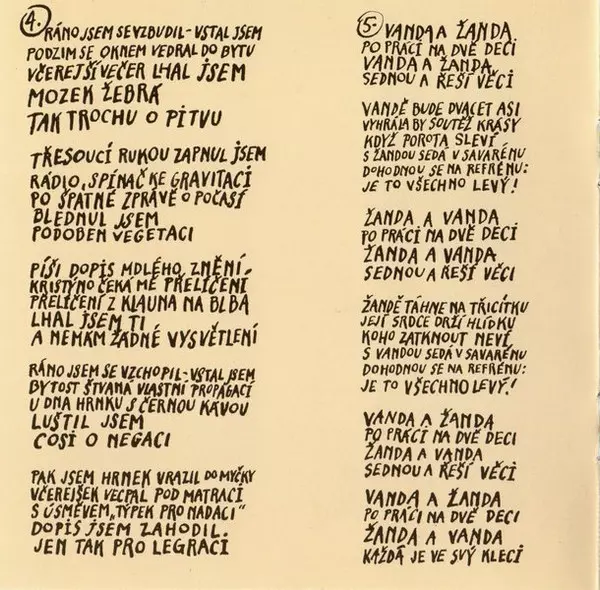 4. RÁNO JSEM SE VZBUDIL - VSTAL JSEM
PODZIM SE OKNEM VEDRAL DO BYTU
VČEREJŠÍ VEČER LHAL JSEM
MOZEK ŽEBRÁ
TAK TROCHU O PITVU
TŘESOUCÍ RUKOU ZAPNUL JSEM
RÁDIO, SPÍNAČ KE GRAVITACI
PO ŠPATNÉ ZPRÁVĚ O POČASÍ
BLEDNUL JSEM
PODOBEN VEGETACI
PÍŠI DOPIS MDLÉHO ZNĚNÍ.
KRISTÝNO ČEKÁ MĚ PŘELÍČENÍ
PŘELÍČENÍ Z KLAUNA NA BLBA
LHAL JSEM TI
A NEMÁM ŽÁDNÉ VYSVĚTLENÍ
RÁNO JSEM SE VZCHOPIL - VSTAL JSEM
BYTOST ŠTVANÁ VLASTNÍ PROPAGACÍ
U DNA HRNKU S ČERNOU KÁVOU
LUŠTIL JSEM
COSI O NEGACI
PAK JSEM HRNEK VRAZIL DO MYČKY
VČEREJŠEK VECPAL POD MATRACI
S ÚSMĚVEM „TÝPEK PRO NADACI"
DOPIS JSEM ZAHODIL.
JEN TAK PRO LEGRACI
5. VANDA A ŽANDA
PO PRÁCI NA DVĚ DECI
VANDA A ŽANDA
SEDNOU A ŘEŠÍ VĚCI
VANDĚ BUDE DVACET ASI
VYHRÁLA BY SOUTĚŽ KRÁSY
KDYŽ POROTA SLEVÍ
S ŽANDOU SEDÁ V SAVARÉNU
DOHODNOU SE NA REFRÉNU:
JE TO VŠECHNO LEVÝ!
ŽANDA A VANDA
PO PRÁCI NA DVĚ DECI
ŽANDA A VANDA
SEDNOU A ŘEŠÍ VĚCI
ŽANDĚ TÁHNE NA TŘICÍTKU
JEJÍ SRDCE DRŽÍ HLÍDKU
KOHO ZATKNOUT NEVÍ
S VANDOU SEDÁ V SAVARÉNU
DOHODNOU SE NA REFRÉNU:
JE TO VŠECHNO LEVÝ!
VANDA A ŽANDA
PO PRÁCI NA DVĚ DECI
ŽANDA A VANDA
SEDNOU A ŘEŠÍ VĚCI
VANDA A ŽANDA
PO PRÁCI NA DVĚ DECI
ŽANDA A VANDA
KAŽDÁ JE VE SVÝ KLECI